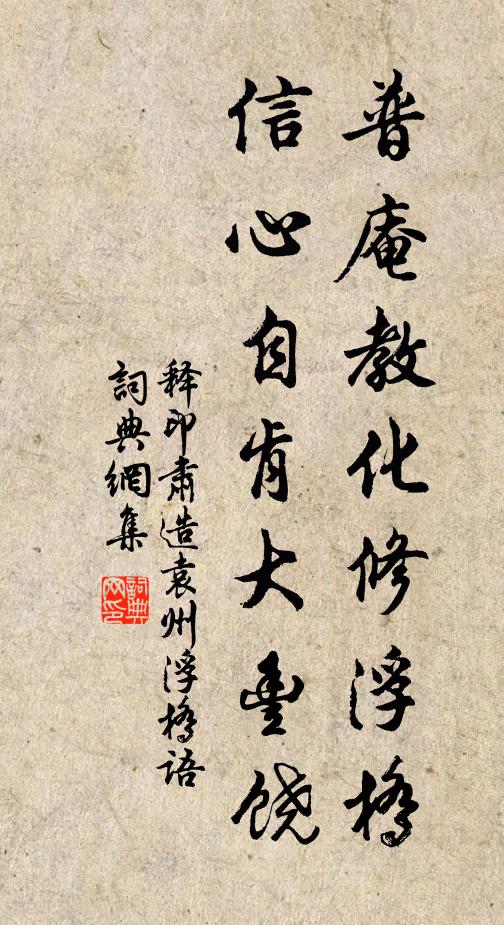 普庵教化修浮橋
信心自肯大豊饶
释印肃造袁州浮橋语
詞典網集
詞典網印